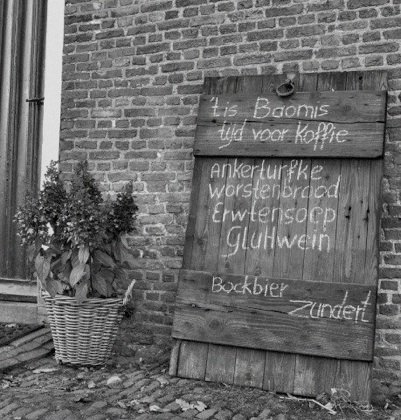 't is Baomis
tijd voor Koffie
Ankerturfke
worstenbrood
Erwtensoep
Gluhwein
Bockbier
Zundert